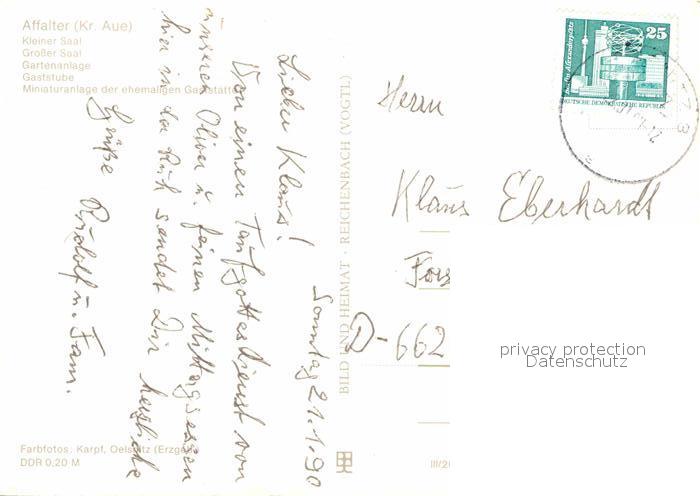 Affalter (Kr. Aue)
Kleiner Saal
Großer Saal
Gartenanlage
Gaststube
Miniaturanlage der ehemaligen Gaststätte
Sonntag 21.1.90
Lieber Klaus!
Von einen Taufgottesdienst von
unserer Oliver u. feinen Mittagessen
hier in der Ruh sendet Dir herzliche
Grüße Rudolf u. Fam.
Farbfotos: Karpf, Oelsnitz (Erzgeb.)
DDR 0,20 M
BILD UND HEIMAT · REICHENBACH (VOGTL)
III/2
25
Berlin, Alexanderplatz
DEUTSCHE DEMOKRATISCHE REPUBLIK
Herrn
Klaus Eberhardt
Fors
D-662
privacy protection
Datenschutz